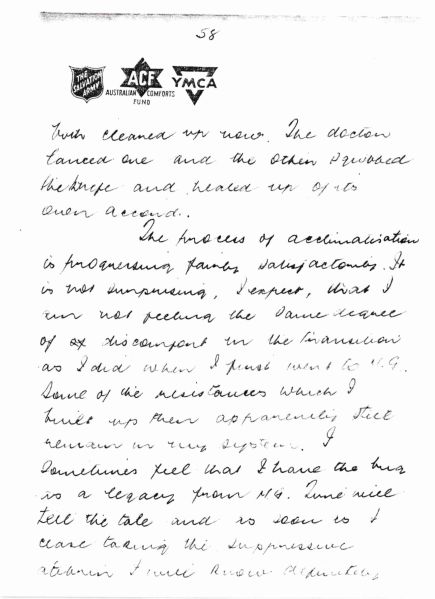 58
THE SALVATION ARMY
ACF
AUSTRALIAN COMFORTS FUND
YMCA
both cleaned up now. The doctor
lanced one and the other
the knife and healed up of its
own accord.
The process of acclimatisation
is progressing fairly satisfactorily. It
is not surprising, I expect, that I
am not feeling the same degree
of discomfort in the transition
as I did when I first went to N.G.
Some of the resistances which I
built up then apparently still
remain in my system. I
sometimes feel that I have the bug
as a legacy from N.G. Time will
tell the tale and as soon as I
cease taking the suppressive
atebrin I will know definitely,